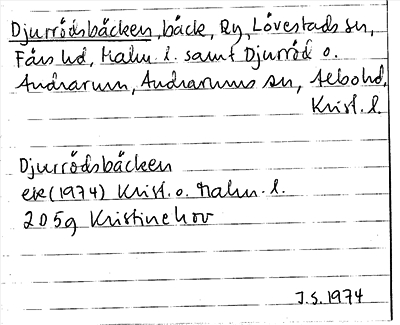 Djurrödsbäcken, bäck, Ry, Lövestads sn,
Färs hd, Malm. l. samt Djurröd o.
Andrarum, Andrarums sn, Albo hd,
Krist. l.
Djurrödsbäcken
ek (1974) Krist. o. Malm. l.
2 D 5g Kristinehov
J.S. 1974